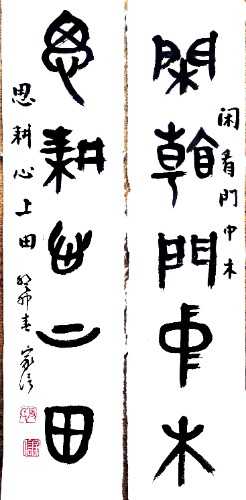 闲看门中木
閑看門中木
思耕心上田
思耕心上田
癸卯春